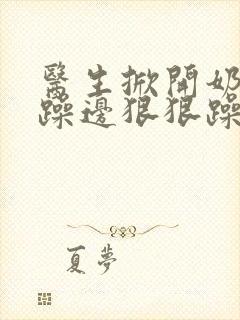 醫生掀開奶
躁邊狠狠躁
夏夢